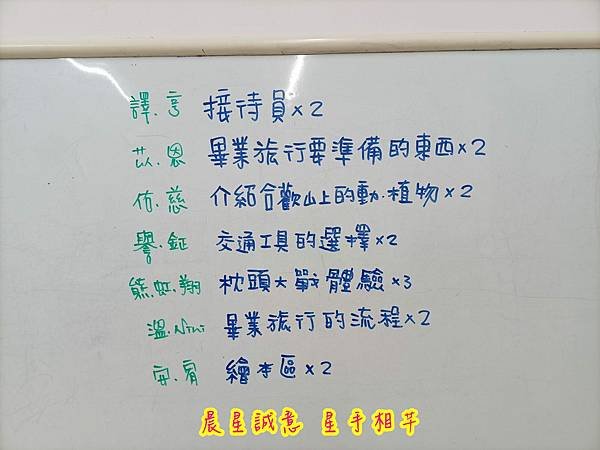 譯.亨 接待員×2
苡.恩 畢業旅行要準備的東西×2
佑.慈 介紹合歡山上的動.植物×2
譽.鉦 交通工具的選擇×2
熊.虹.翔 枕頭大戰體驗×3
溫.Nini 畢業旅行的流程×2
安.宥 繪本區×2
晨星誠意 星手相芊